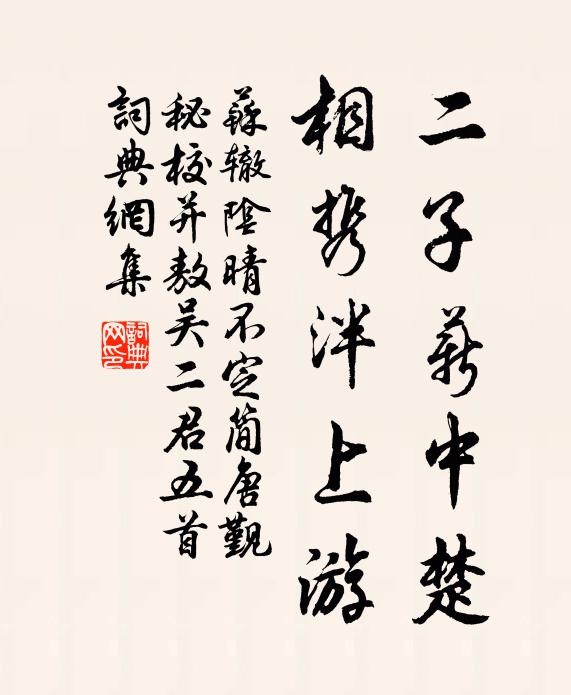 二子薪中楚
相携泮上游
蘇辙陰晴不定简唐觐
秘校并敖吴二君五首
詞典網集
詞典网印